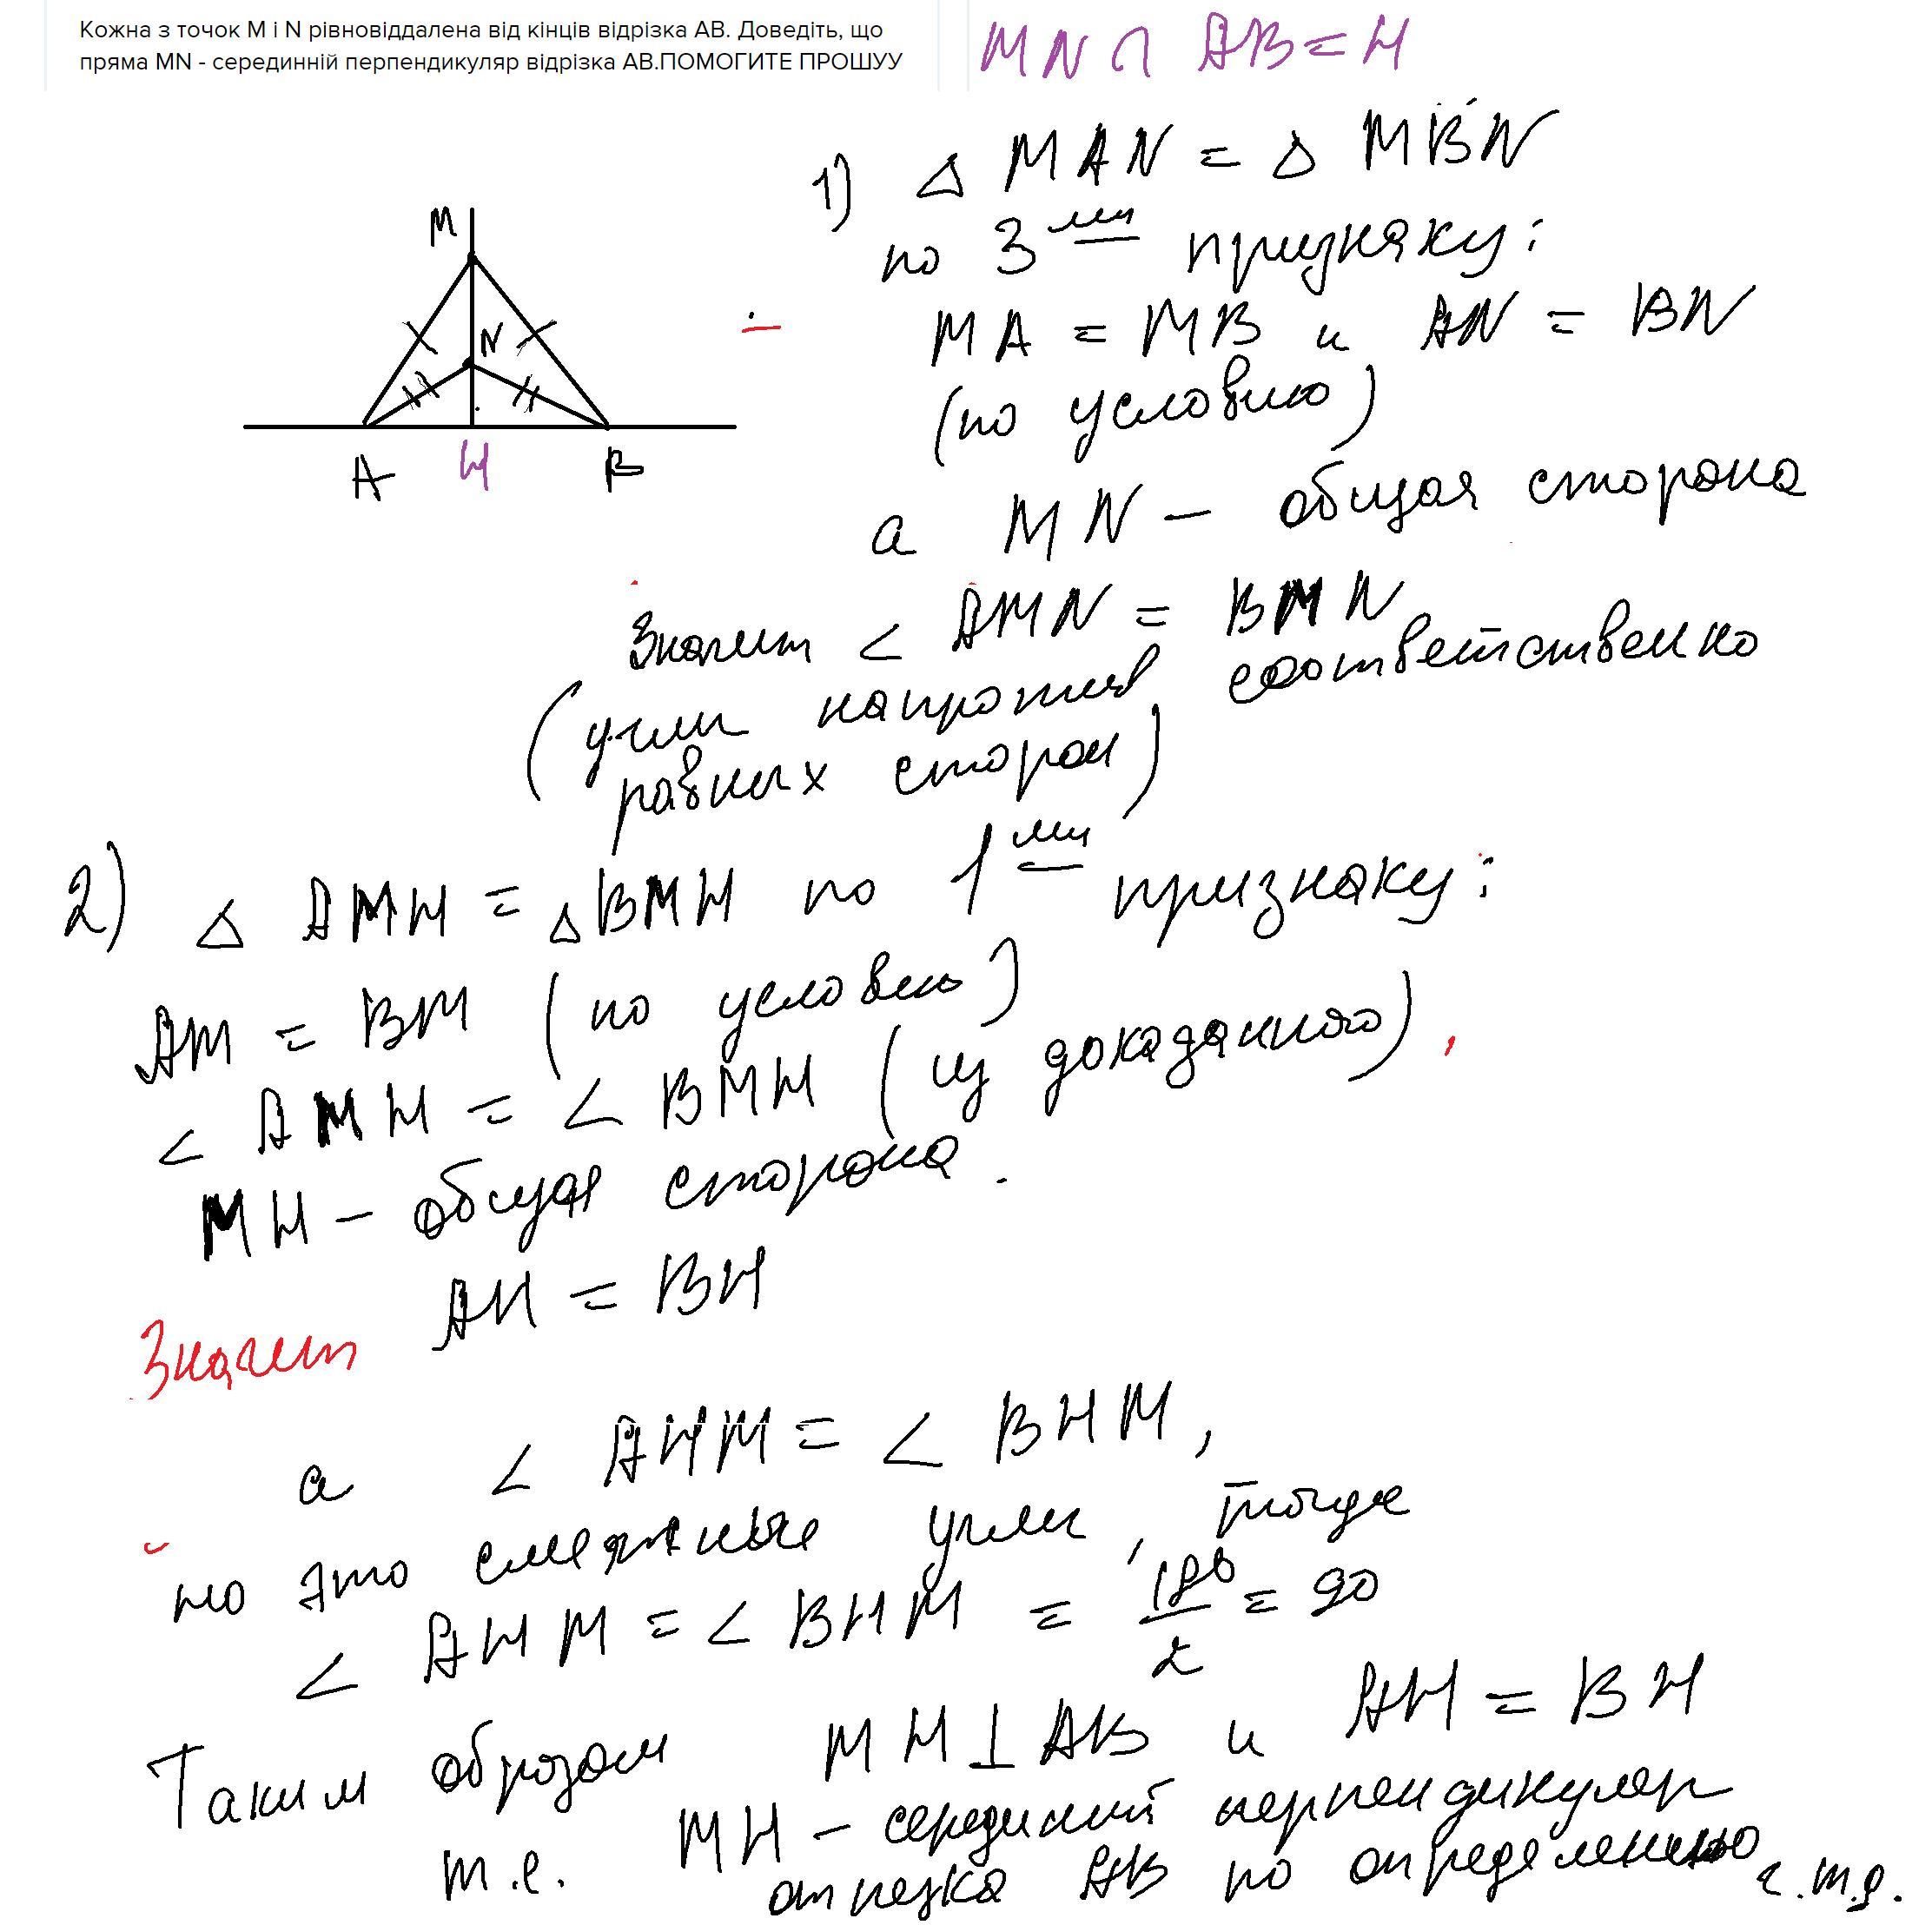 Кожна з точок M і N рівновіддалена від кінців відрізка AB. Доведіть, що
пряма MN - серединній перпендикуляр відрізка AB.ПОМОГИТЕ ПРОШУУ
MN ∩ AB = H
M
N
A H B
1) △ MAN = △ MBN
по 3 му признаку:
MA = MB и AN = BN
(по условию)
а MN - общая сторона
Значит < AMN = BMN
(углы напротив соответственно
равных сторон)
2) △ AMH = △ BMH по 1 му признаку:
AM = BM (по условию)
< AMH = < BMH (из доказанного),
MH - общая сторона.
Значит AH = BH
а < AHM = < BHM,
но это смежные углы, тогда
< AHM = < BHM = 180/2 = 90
Таким образом MH ⊥ AB и AH = BH
т.е. MH - серединий перпендикуляр
отрезка AB по определению ч.т.д.